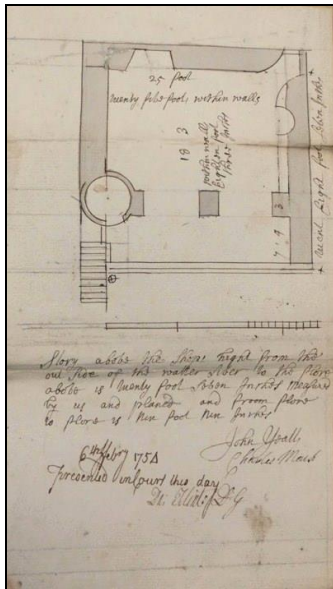 25 foot
twenty five foot, within walls
18 3
within walls
Eighten foot
three Inches
3
7 : 9
Eight foot seven Inches
Story above the shops hight from the
out side of the watter tiber to the story
above is twenty foot seben Inches measured
by us and planed and from flore
to flore is Nin foot Nin Inches
John Yeatt
Charles Mack
6th febry 1754
Presented in Court this day
D G